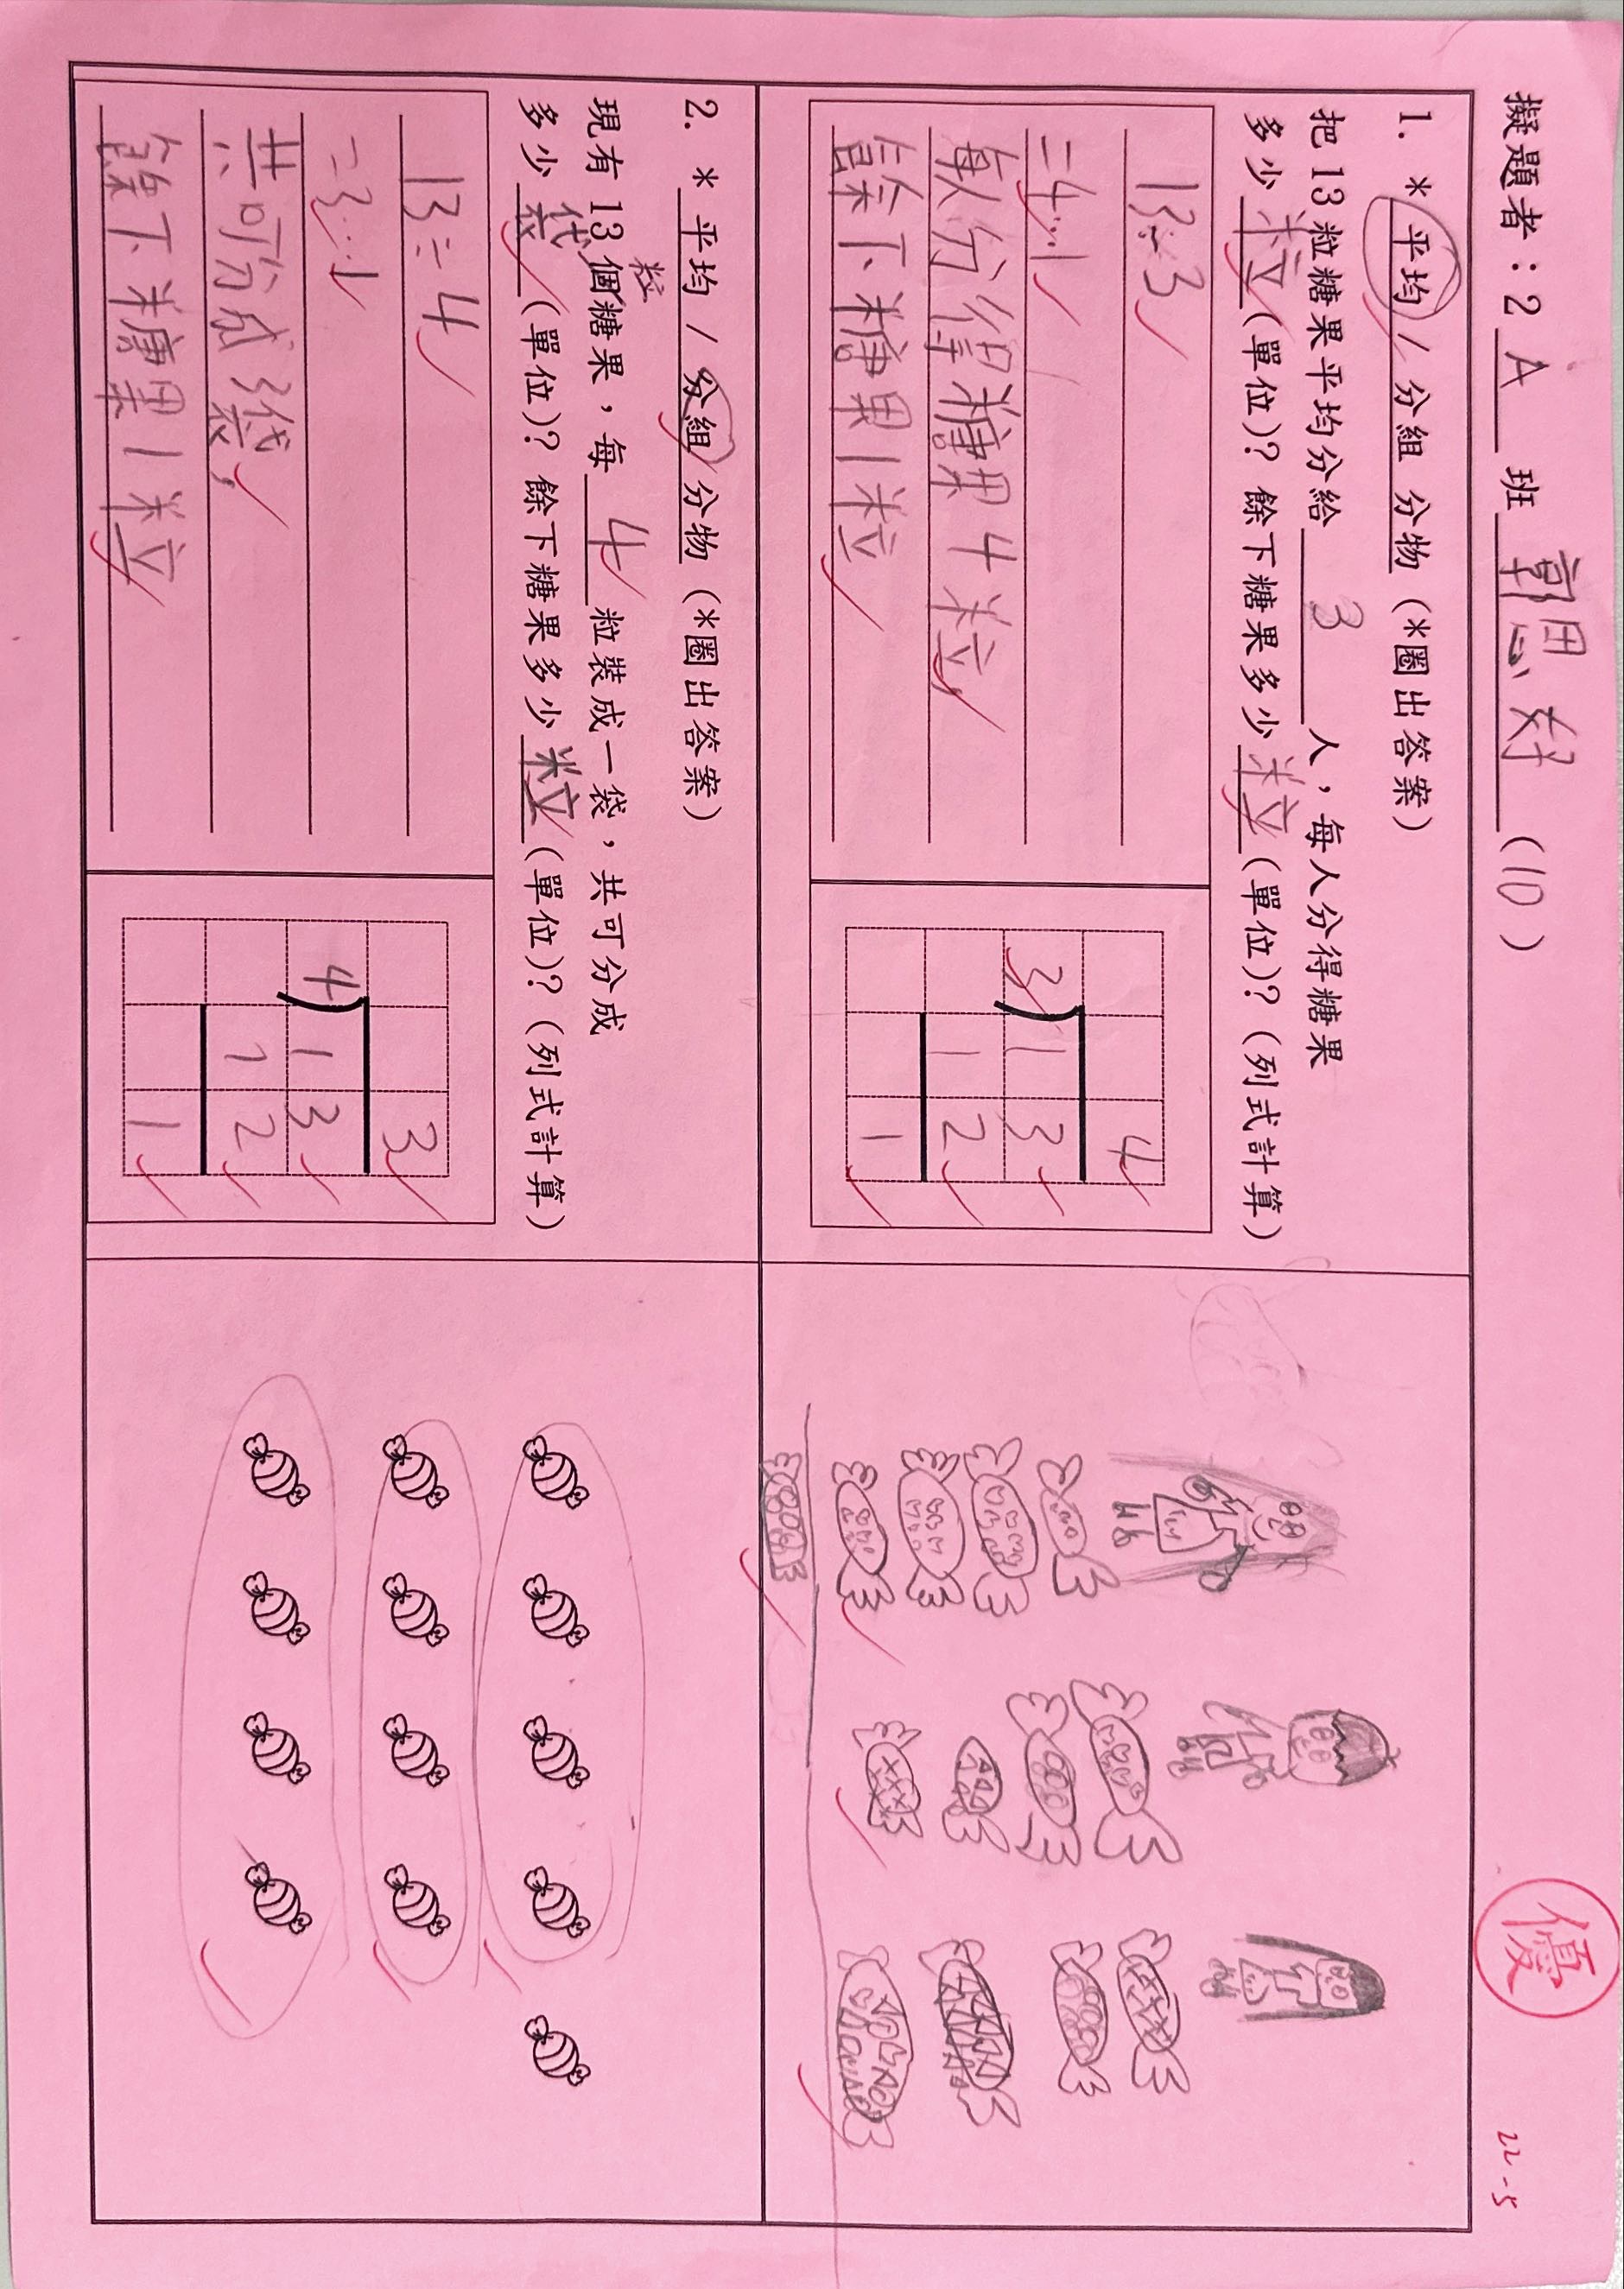 擬題者：2 A 班 郭恩妤 (10)
優
22-5
1. *平均 / 分組 分物 (*圈出答案)
把 13 粒糖果平均分給 3 人，每人分得糖果
多少 粒 (單位)？餘下糖果多少 粒 (單位)？(列式計算)
13÷3
=4…1
每人分得糖果4粒，
餘下糖果1粒
4
3 1 3
1 2
1
2. *平均 / 分組 分物 (*圈出答案)
粒
現有 13 個糖果，每 4 粒裝成一袋，共可分成
多少 袋 (單位)？餘下糖果多少 粒 (單位)？(列式計算)
13÷4
=3…1
共可分成3袋，
餘下糖果1粒
3
4 1 3
1 2
1